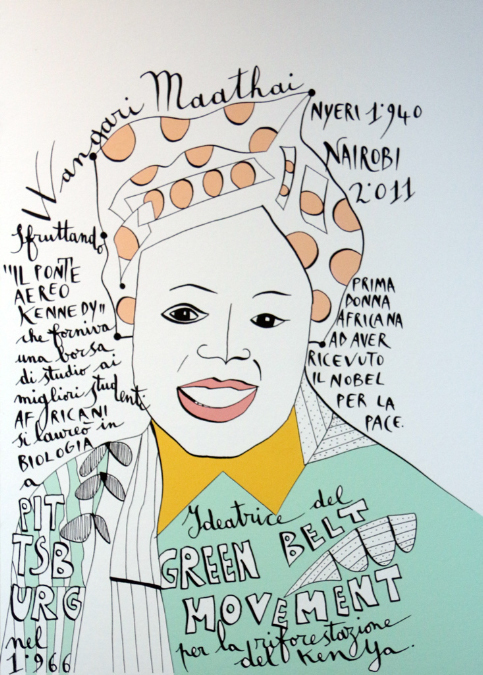 Wangari Maathai
NYERI 1.940
NAIROBI
2.011
Sfruttando
"IL PONTE
AEREO
KENNEDY"
che forniva
una borsa
di studio ai
migliori studenti
AFRICANI
si laureò in
BIOLOGIA
a
PIT
TSB
URG
nel
1.966
PRIMA
DONNA
AFRICANA
AD AVER
RICEVUTO
IL NOBEL
PER LA
PACE.
Ideatrice del
GREEN BELT
MOVEMENT
per la riforestazione
del KenYa.